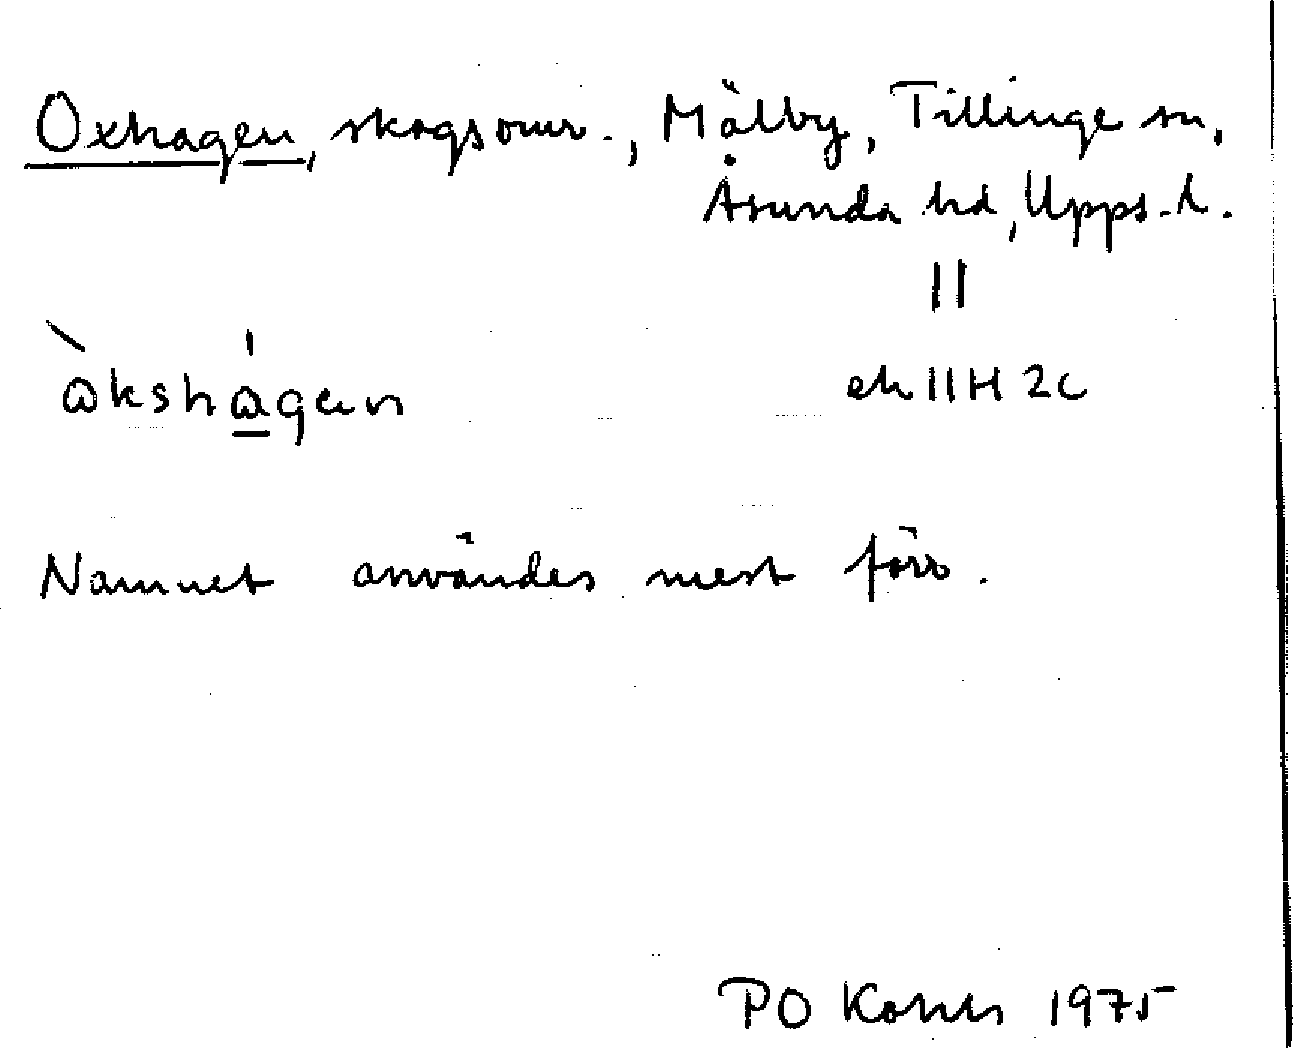 Oxhagen, skogsomr., Mälby, Tillinge sn,
Åsunda hd, Upps. l.
ek 11H 2c
Namnet användes mest förr.
PO 1975